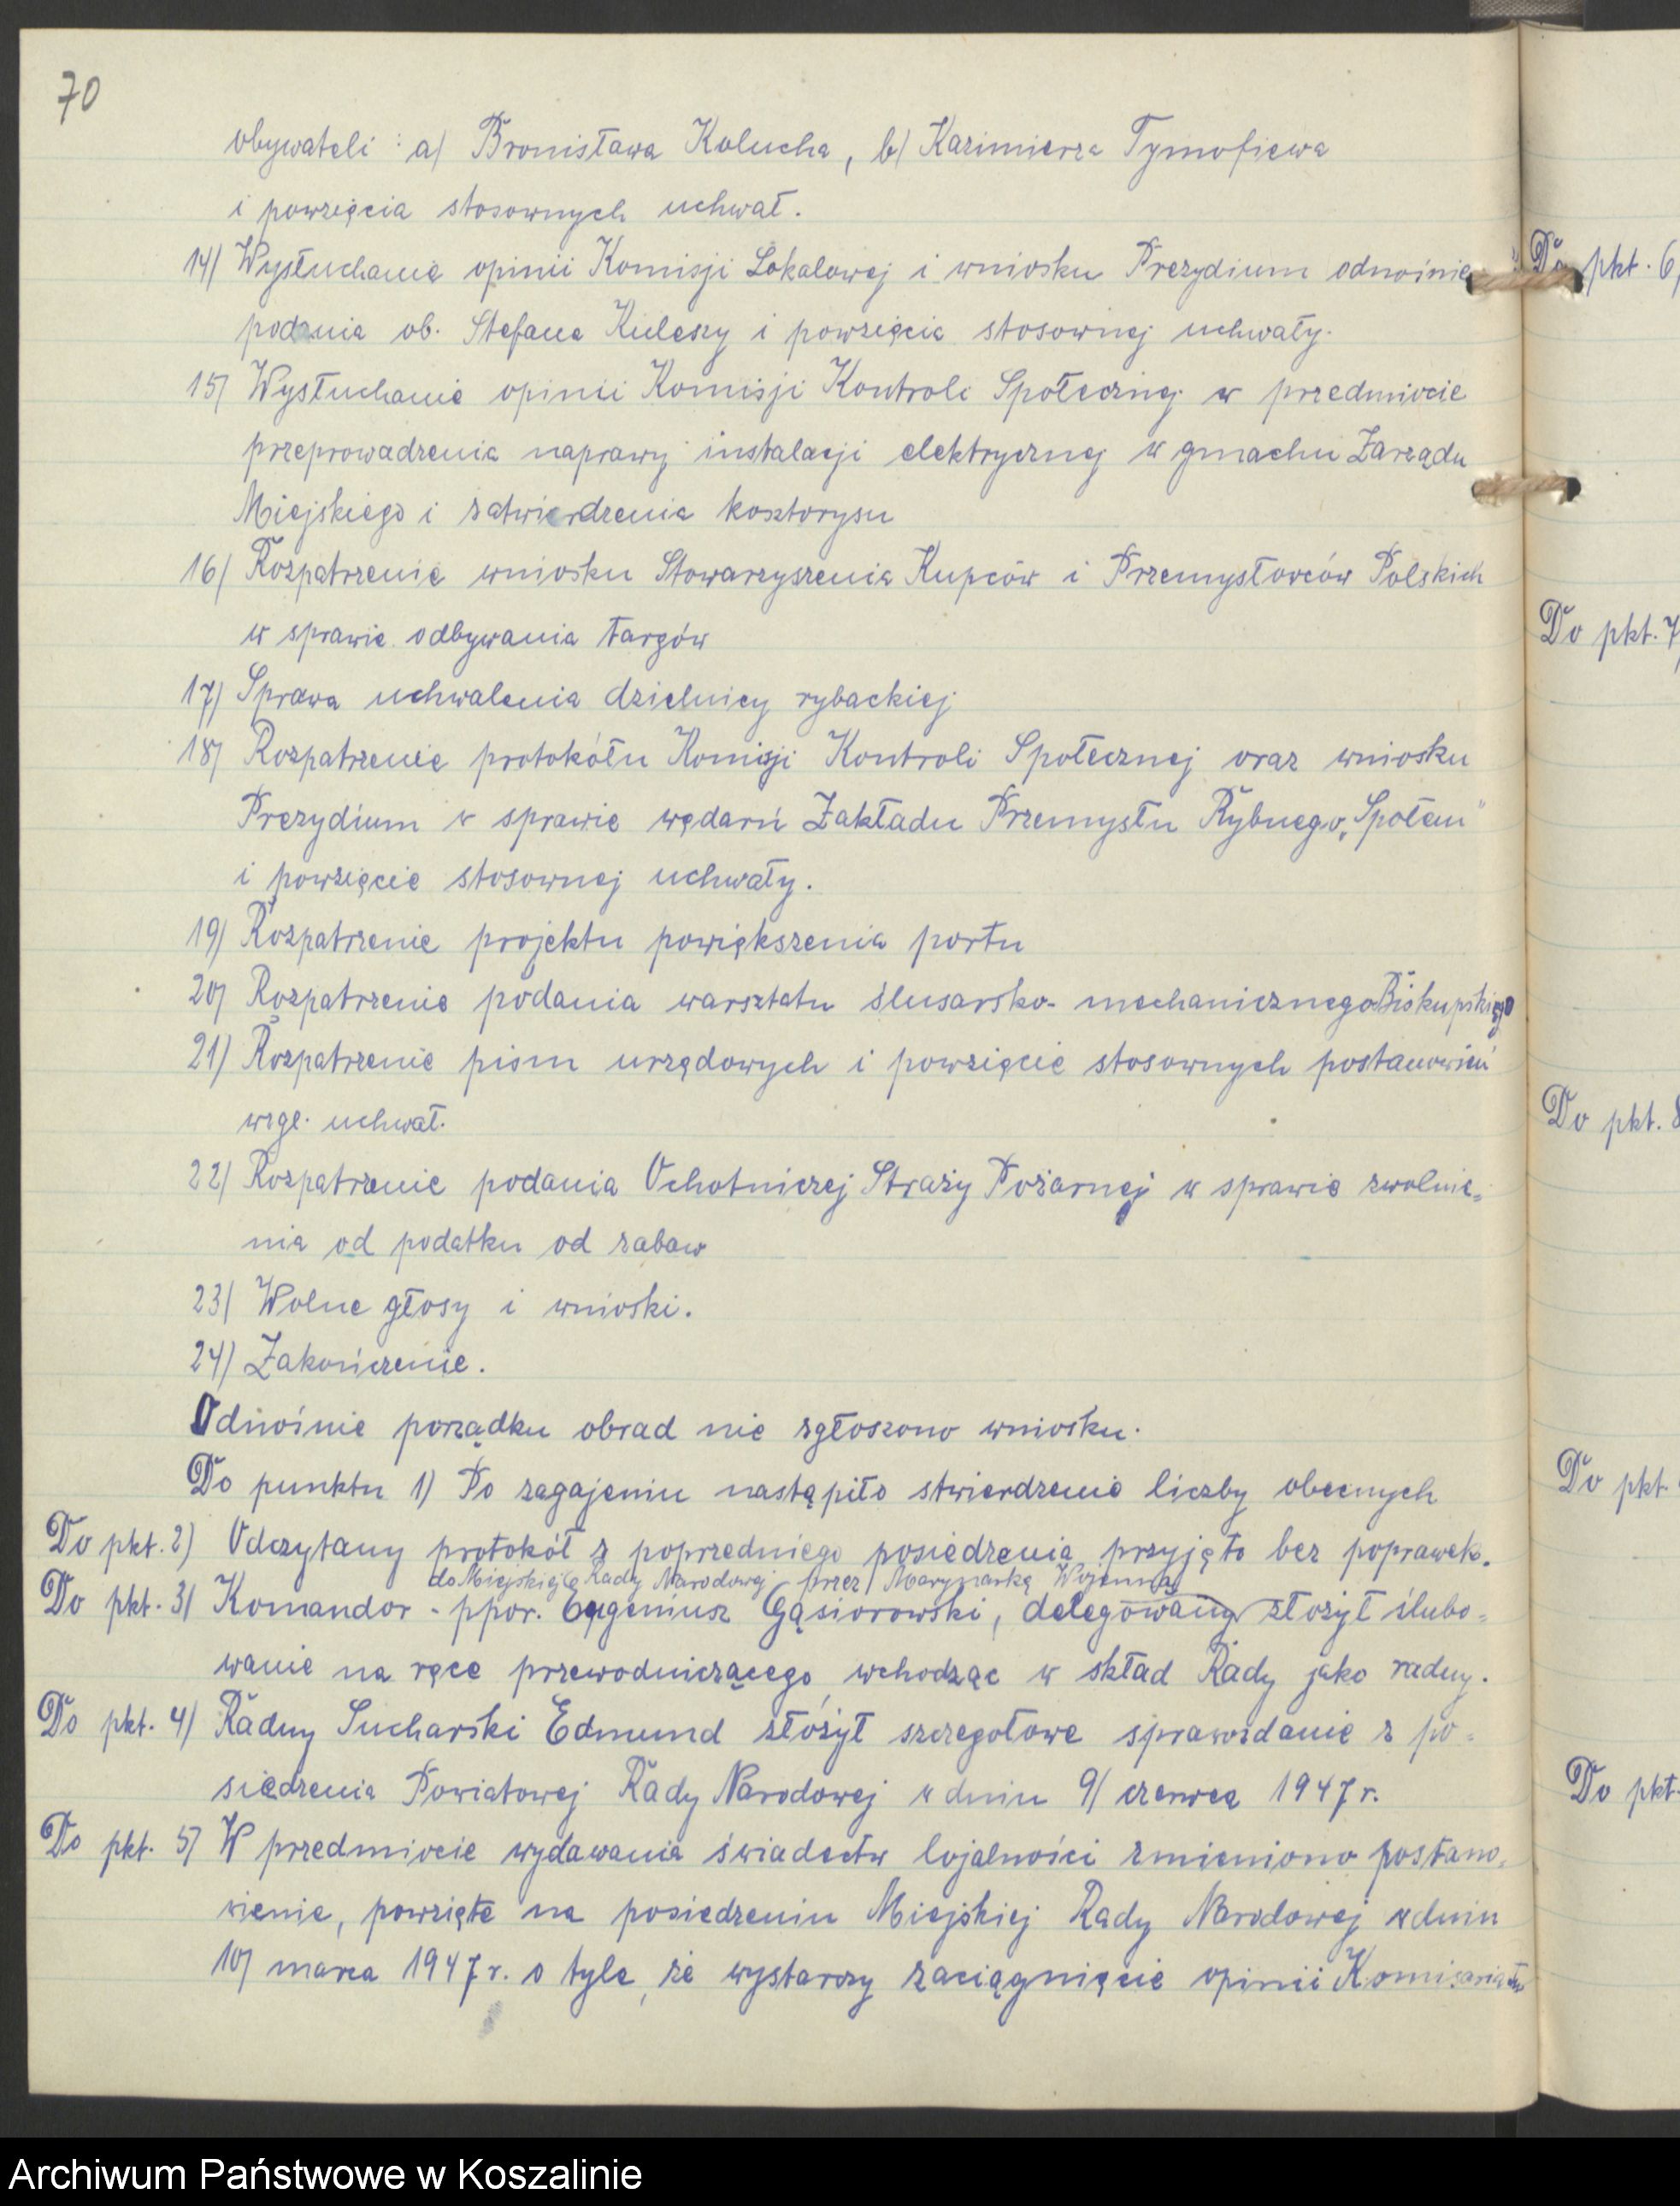 70
obywateli : a/ Bronisława Kolucha, b/ Kazimierza Tymofiewa
i powzięcia stosownych uchwał.
14/ Wysłuchanie opinii Komisji Lokalowej i wniosku Prezydium odnośnie
podania ob. Stefana Kuleszy i powzięcia stosownej uchwały.
15/ Wysłuchanie opinii Komisji Kontroli Społecznej w przedmiocie
przeprowadzenia naprawy instalacji elektrycznej w gmachu Zarządu
Miejskiego i zatwierdzenia kosztorysu
16/ Rozpatrzenie wniosku Stowarzyszenia Kupców i Przemysłowców Polskich
w sprawie odbywania targów
17/ Sprawa uchwalenia dzielnicy rybackiej
18/ Rozpatrzenie protokółu Komisji Kontroli Społecznej oraz wniosku
Prezydium w sprawie wędarń Zakładu Przemysłu Rybnego „Społem"
i powzięcie stosownej uchwały.
19/ Rozpatrzenie projektu powiększenia portu
20/ Rozpatrzenie podania warsztatu ślusarsko-mechanicznego Biskupskiego
21/ Rozpatrzenie pism urzędowych i powzięcie stosownych postanowień
wzgl. uchwał.
22/ Rozpatrzenie podania Ochotniczej Straży Pożarnej w sprawie zwolnie=
nia od podatku od zabaw
23/ Wolne głosy i wnioski.
24/ Zakończenie.
Odnośnie porządku obrad nie zgłoszono wniosku.
Do punktu 1) Po zagajeniu nastąpiło stwierdzenie liczby obecnych
Do pkt. 2) Odczytany protokół z poprzedniego posiedzenia przyjęto bez poprawek.
do Miejskiej Rady Narodowej przez Marynarkę Wojenną
Do pkt. 3/ Komandor - ppor. Eugeniusz Gąsiorowski, delegowany złożył ślubo=
wanie na ręce przewodniczącego wchodząc w skład Rady jako radny.
Do pkt. 4/ Radny Sucharski Edmund złożył szczegołowe sprawozdanie z po=
siedzenia Powiatowej Rady Narodowej w dniu 9/ czerwca 1947 r.
Do pkt. 5/ W przedmiocie wydawania świadectw lojalności zmieniono postano=
wienie, powzięte na posiedzeniu Miejskiej Rady Narodowej w dniu
10/ marca 1947 r. o tyle, że wystarczy zaciągnięcie opinii Komisariatu
Do pkt. 6/
Do pkt. 7/
Do pkt. 8
Do pkt.
Do pkt.
Archiwum Państwowe w Koszalinie